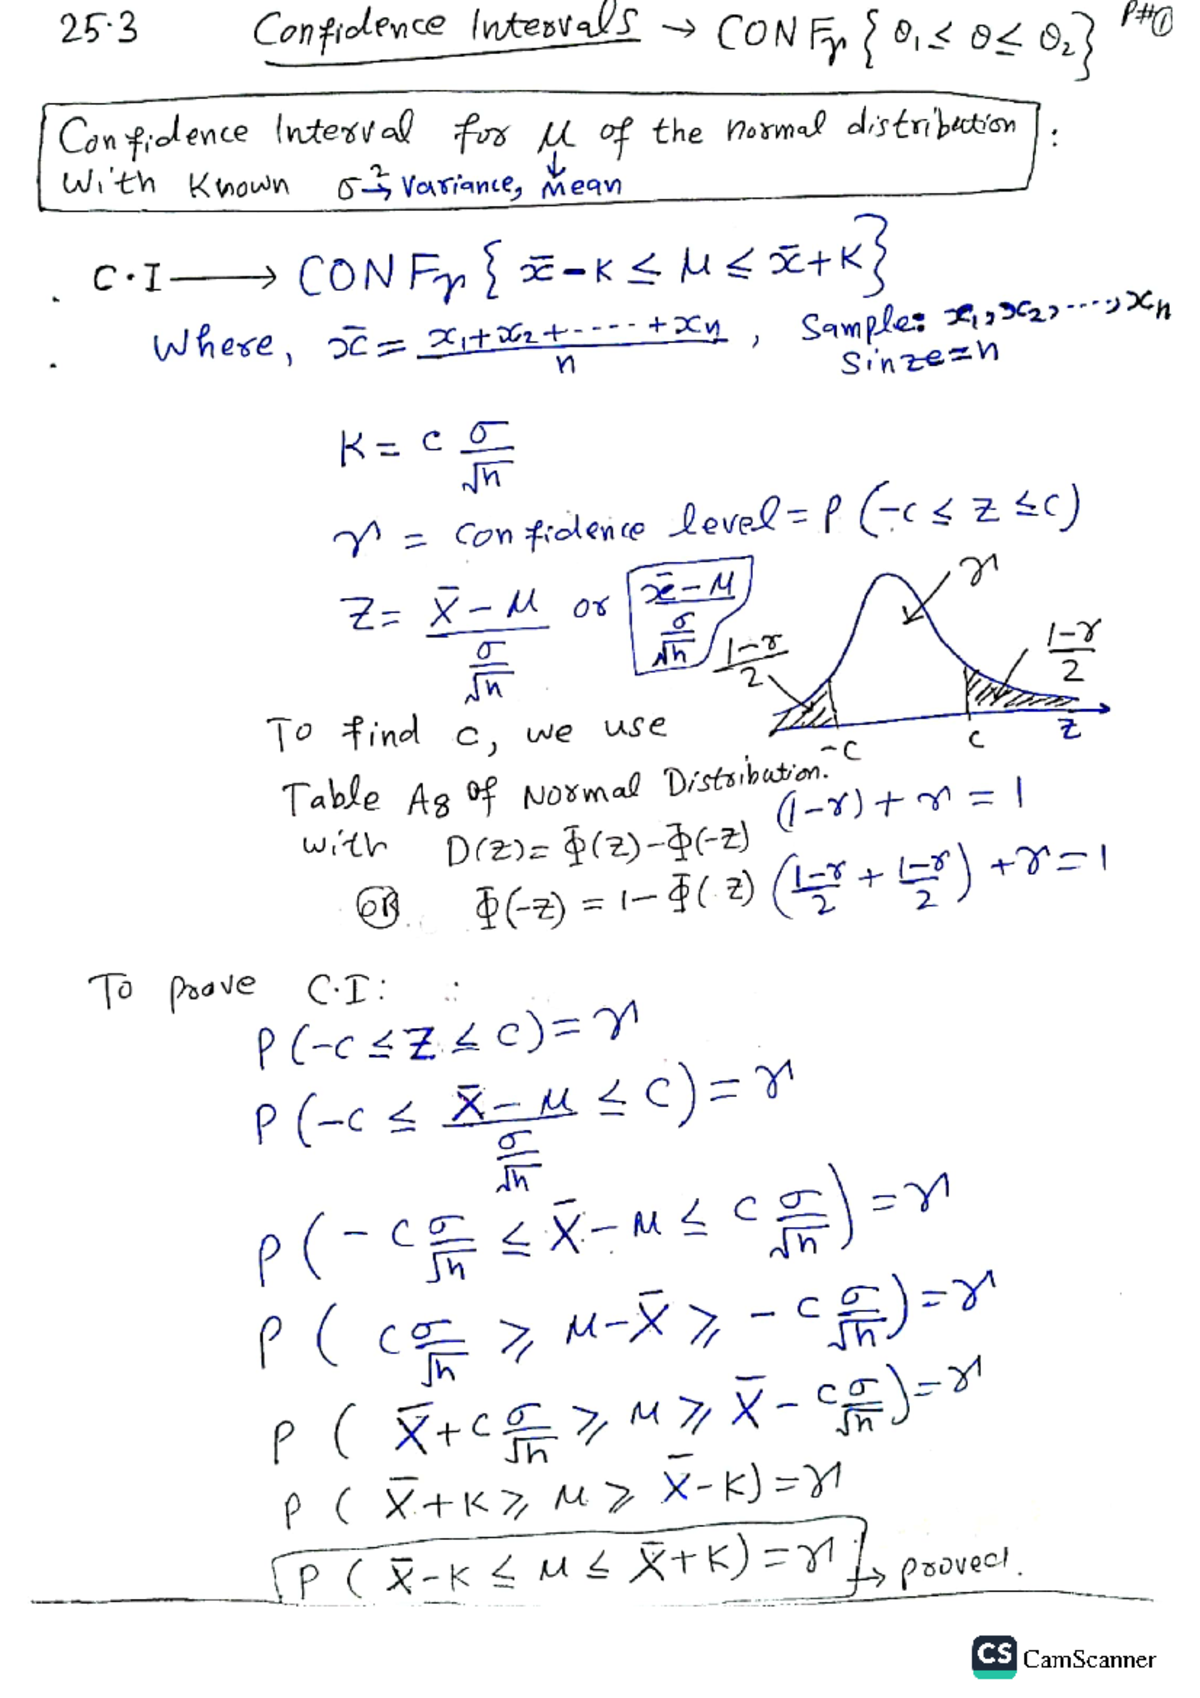 25.3 Confidence Intervals → CONFγ { θ₁ ≤ θ ≤ θ₂ } P#①
Confidence Interval for μ of the normal distribution :
With Known σ² → Variance, Mean
C.I → CONFγ { x̄ - K ≤ μ ≤ x̄ + K }
Where, x̄ = (x₁ + x₂ + ---- + xn) / n , Sample: x₁, x₂, ...., xn
Sinze = n
K = c σ/√n
γ = confidence level = P (-c ≤ Z ≤ c)
γ
Z = (X̄ - μ) / (σ/√n) or (x̄ - μ) / (σ/√n)
(1-γ)/2 (1-γ)/2
-c c Z
To find c, we use
Table A8 of Normal Distribution.
(1-γ) + γ = 1
with D(z) = Φ(z) - Φ(-z)
OR Φ(-z) = 1 - Φ(z) ((1-γ)/2 + (1-γ)/2) + γ = 1
To prove C.I:
P (-c ≤ Z ≤ c) = γ
P (-c ≤ (X̄ - μ) / (σ/√n) ≤ c) = γ
P ( - c σ/√n ≤ X̄ - μ ≤ c σ/√n ) = γ
P ( c σ/√n ⩾ μ - X̄ ⩾ - c σ/√n ) = γ
P ( X̄ + c σ/√n ⩾ μ ⩾ X̄ - c σ/√n ) = γ
P ( X̄ + K ⩾ μ ⩾ X̄ - K ) = γ
P ( X̄ - K ≤ μ ≤ X̄ + K ) = γ → proved.
CS CamScanner